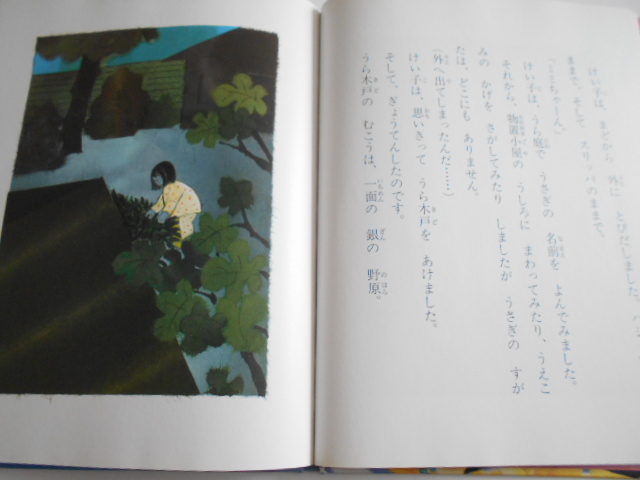 けい子は、まどから 外に とびだしました。
ままで、そして スリッパのままで、
「 ちゃーん。」
けい子は、うら庭で うさぎの 名前を よんでみました。
それから、物置小屋の うしろに まわってみたり、うえこ
みの かげを さがしてみたり しましたが うさぎの すが
たは、どこにも ありません。
(外へ出てしまったんだ……)
けい子は、思いきって うら木戸を あけました。
そして、ぎょうてんしたのです。
うら木戸の むこうは、一面の 銀の 野原。